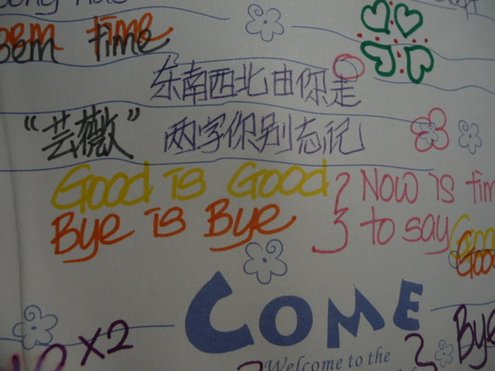 time
东南西北由你是
“芸薇” 两字你别忘记
Good is Good
Bye is Bye
? Now is tim
3 to say Good
Good
COME
Welcome to the
×2
Bye